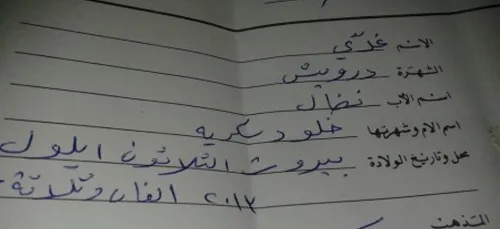 الاسم عدي
الشهرة درويش
اسم الأب نضال
اسم الام وشهرتها خلود سكريه
محل وتاريخ الولادة بيروت الثلاثون ايلول
٢٠١٣ الفان وثلاثة
المذهب